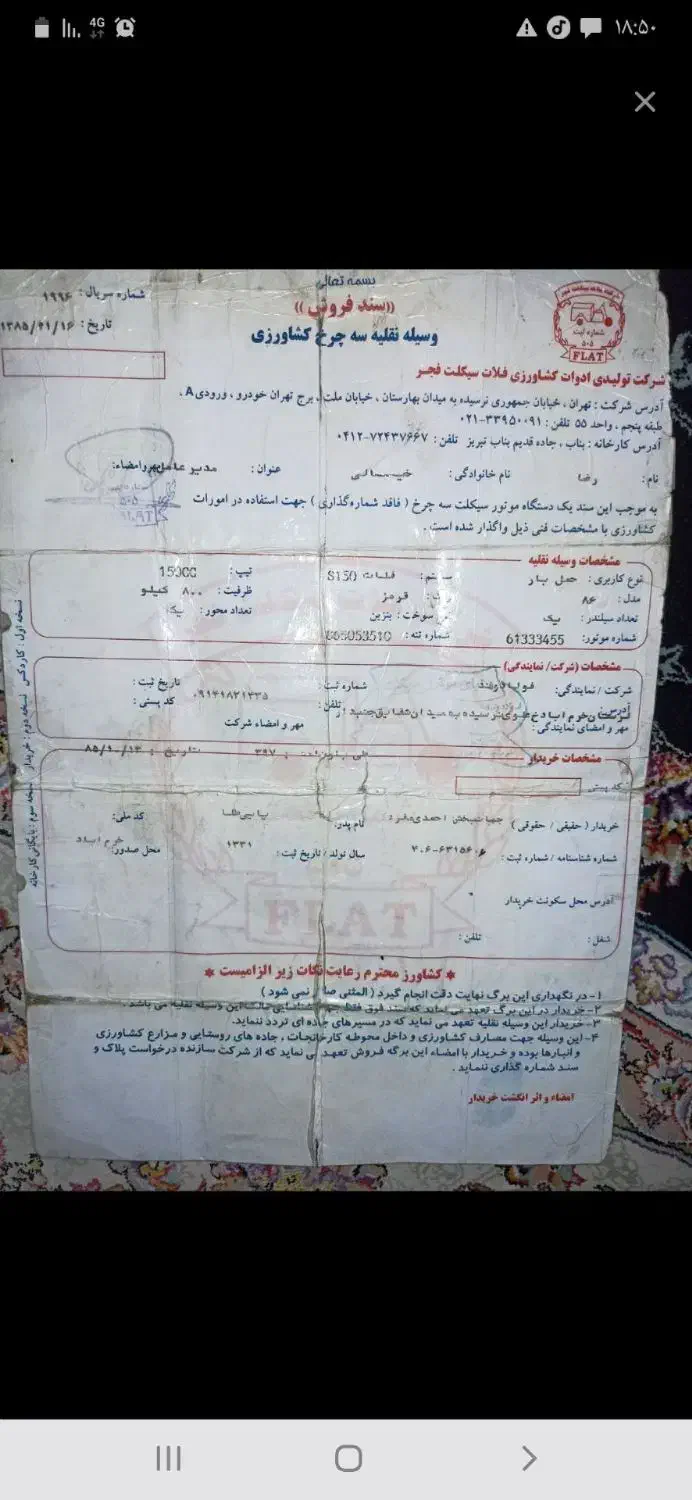 ۱۸:۵۰
4G
بسمه تعالی
شماره سریال: ۱۹۹۶
((سند فروش))
تاریخ: ۱۳۸۵/۰۱/۱۶
وسیله نقلیه سه چرخ کشاورزی
شماره ثبت
۵۰۵
FLAT
شرکت تولیدی ادوات کشاورزی فلات سیکلت فجر
آدرس شرکت: تهران، خیابان جمهوری نرسیده به میدان بهارستان، خیابان ملت، برج تهران خودرو، ورودی A،
طبقه پنجم، واحد ۵۵ تلفن: ۳۳۹۵۰۰۹۱-۰۲۱
آدرس کارخانه: بناب، جاده قدیم بناب تبریز تلفن: ۷۲۴۳۷۶۶۷-۰۴۱۲
نام: رضا نام خانوادگی: عنوان: مدیر عامل مهر و امضاء:
به موجب این سند یک دستگاه موتور سیکلت سه چرخ (فاقد شماره گذاری) جهت استفاده در امورات
کشاورزی با مشخصات فنی ذیل واگذار شده است.
مشخصات وسیله نقلیه
نوع کاربری: حمل بار سیستم: فلات S150 تیپ: 150CC
مدل: ۸۶ رنگ: قرمز ظرفیت: ۸۰۰ کیلو
تعداد سیلندر: یک سوخت: بنزین تعداد محور: یک
شماره موتور: 61333455 شماره تنه:
مشخصات (شرکت/ نمایندگی)
شرکت / نمایندگی: شماره ثبت: تاریخ ثبت:
آدرس: تلفن: ۰۹۱۴۱۸۲۱۴۳۵ کد پستی:
مهر و امضای نمایندگی: مهر و امضاء شرکت
مشخصات خریدار
کد پستی
خریدار (حقیقی / حقوقی) جهانبخش نام پدر: کد ملی:
شماره شناسنامه / شماره ثبت: سال تولد / تاریخ ثبت: ۱۳۳۱ محل صدور: خرم آباد
آدرس محل سکونت خریدار
شغل: تلفن:
FLAT
* کشاورز محترم رعایت نکات زیر الزامیست *
۱- در نگهداری این برگ نهایت دقت انجام گیرد (المثنی صادر نمی شود)
۲- خریدار در این برگ تعهد می نماید که سند فوق فقط جهت شناسایی مالک این وسیله نقلیه می باشد.
۳- خریدار این وسیله نقلیه تعهد می نماید که در مسیرهای جاده ای تردد ننماید.
۴- این وسیله جهت مصارف کشاورزی و داخل محوطه کارخانجات، جاده های روستایی و مزارع کشاورزی
و انبارها بوده و خریدار با امضاء این برگه فروش تعهد می نماید که از شرکت سازنده درخواست پلاک و
سند شماره گذاری ننماید.
امضاء و اثر انگشت خریدار
نسخه اول: کاردکس نسخه دوم: خریدار نسخه سوم: بایگانی کارخانه